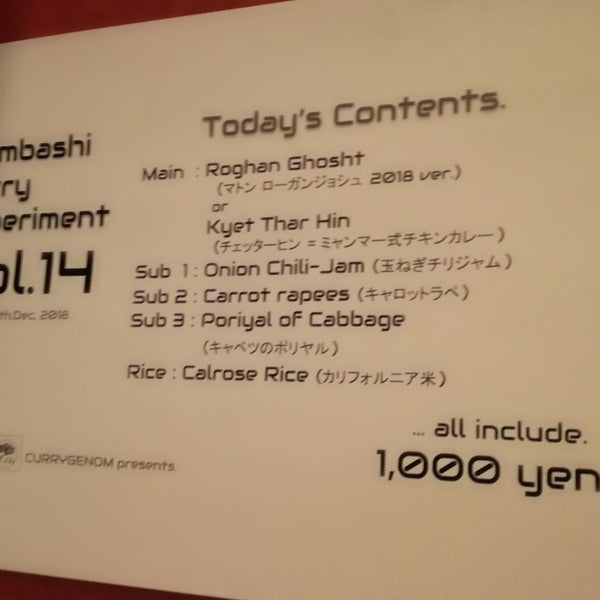 Today's Contents.
mbashi
ry
eriment
ol.14
th.Dec. 2018.
Main : Roghan Ghosht
(マトン ローガンジョシュ 2018 ver.)
or
Kyet Thar Hin
(チェッターヒン = ミャンマー式チキンカレー)
Sub 1 : Onion Chili-Jam (玉ねぎチリジャム)
Sub 2 : Carrot rapees (キャロットラペ)
Sub 3 : Poriyal of Cabbage
(キャベツのポリヤル)
Rice : Calrose Rice (カリフォルニア米)
... all include.
1,000 yen
CURRYGENOM presents.